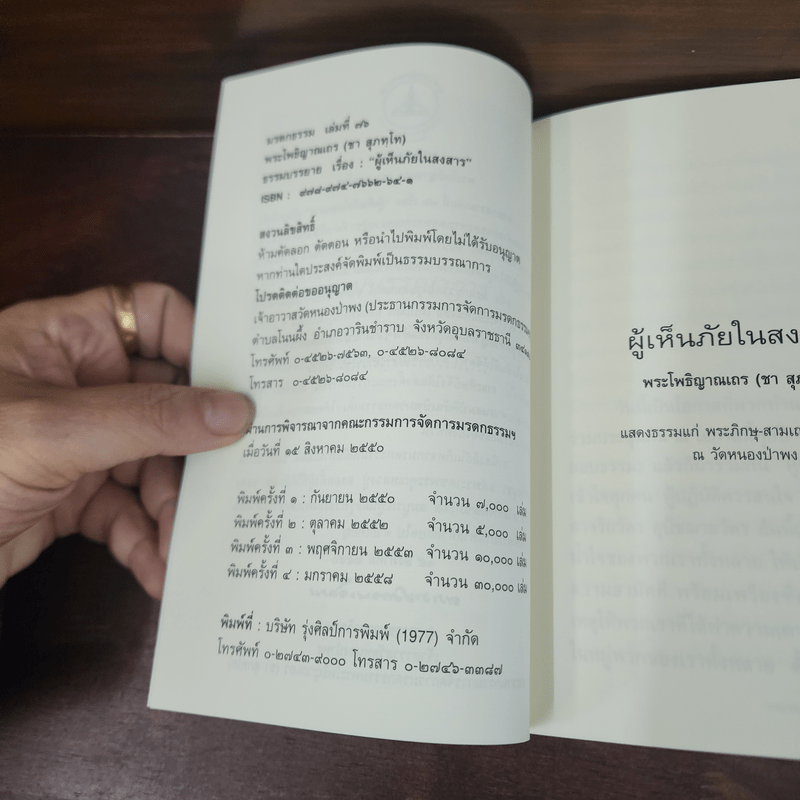 มรดกธรรม เล่มที่ ๗๖
พระโพธิญาณเถร (ชา สุภทฺโท)
ธรรมบรรยาย เรื่อง : "ผู้เห็นภัยในสงสาร"
ISBN : ๙๗๘-๙๗๔-๗๖๖๒-๖๔-๑
สงวนลิขสิทธิ์
ห้ามคัดลอก ตัดตอน หรือนำไปพิมพ์โดยไม่ได้รับอนุญาต
หากท่านใดประสงค์จัดพิมพ์เป็นธรรมบรรณาการ
โปรดติดต่อขออนุญาต
เจ้าอาวาสวัดหนองป่าพง (ประธานกรรมการจัดการมรดกธรรมฯ
ตำบลโนนผึ้ง อำเภอวารินชำราบ จังหวัดอุบลราชธานี
โทรศัพท์ ๐-๔๕๒๖-๗๕๖๓, ๐-๔๕๒๖-๘๐๘๔
โทรสาร ๐-๔๕๒๖-๘๐๘๔
ผ่านการพิจารณาจากคณะกรรมการจัดการมรดกธรรมฯ
เมื่อวันที่ ๑๕ สิงหาคม ๒๕๕๐
พิมพ์ครั้งที่ ๑ : กันยายน ๒๕๕๐ จำนวน ๗,๐๐๐ เล่ม
พิมพ์ครั้งที่ ๒ : ตุลาคม ๒๕๕๒ จำนวน ๕,๐๐๐ เล่ม
พิมพ์ครั้งที่ ๓ : พฤศจิกายน ๒๕๕๓ จำนวน ๑๐,๐๐๐ เล่ม
พิมพ์ครั้งที่ ๔ : มกราคม ๒๕๕๘ จำนวน ๓๐,๐๐๐ เล่ม
พิมพ์ที่ : บริษัท รุ่งศิลป์การพิมพ์ (1977) จำกัด
โทรศัพท์ ๐-๒๗๔๓-๙๐๐๐ โทรสาร ๐-๒๗๔๖-๓๓๘๗
ผู้เห็นภัยในสง
พระโพธิญาณเถร (ชา สุภ
แสดงธรรมแก่ พระภิกษุ-สามเณ
ณ วัดหนองป่าพง